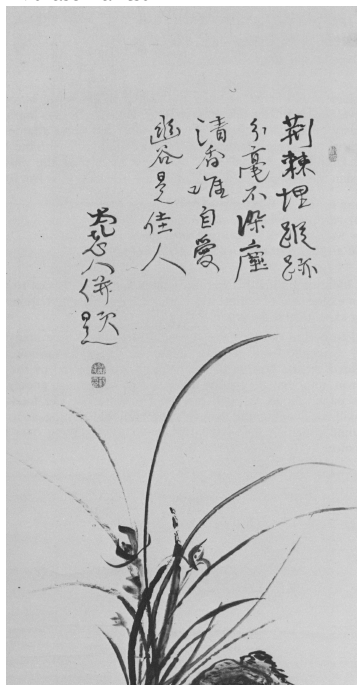 荊棘埋蹤跡
分毫不染塵
清香唯自愛
幽谷是佳人
老人併題